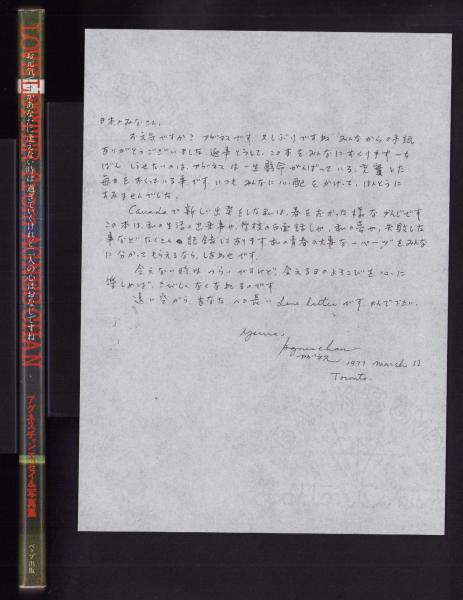 お元気ですかあなたに逢えない時は過ぎていくけれど二人の心はおなじですね
アグネス・チャン エッセイ&写真集
ペップ出版
日本のみなさん、
お元気ですか?アグネスです。久しぶりですね。みんなからの手紙
ありがとうございました。返事として、この本をみんなにおくります。一ち
ばん しらせたいのは、アグネスは一生懸命がんばっている。充実した
毎日をおくっている事です。いつもみんなに心配をかけて、ほんとうに
すみませんでした。
Canadaで新しい出発をした私は、春をむかえた様なかんじです
この本は、私の生活の出来事や、学校の白面話しや、私の夢や、失敗した
事などたくさん 記録しております。私の青春の大事な一ページをみんな
に分かってもらえるなら、しあわせです。
会えない時はつらいですけど、会える日のよろこびを心に
楽しめば、さびしくなくなるのです
遠い空から、あなたへの長い Love letter です。よんで下さい。
yours,
Agnes chan
アグネス
1977 March 12
Toronto.